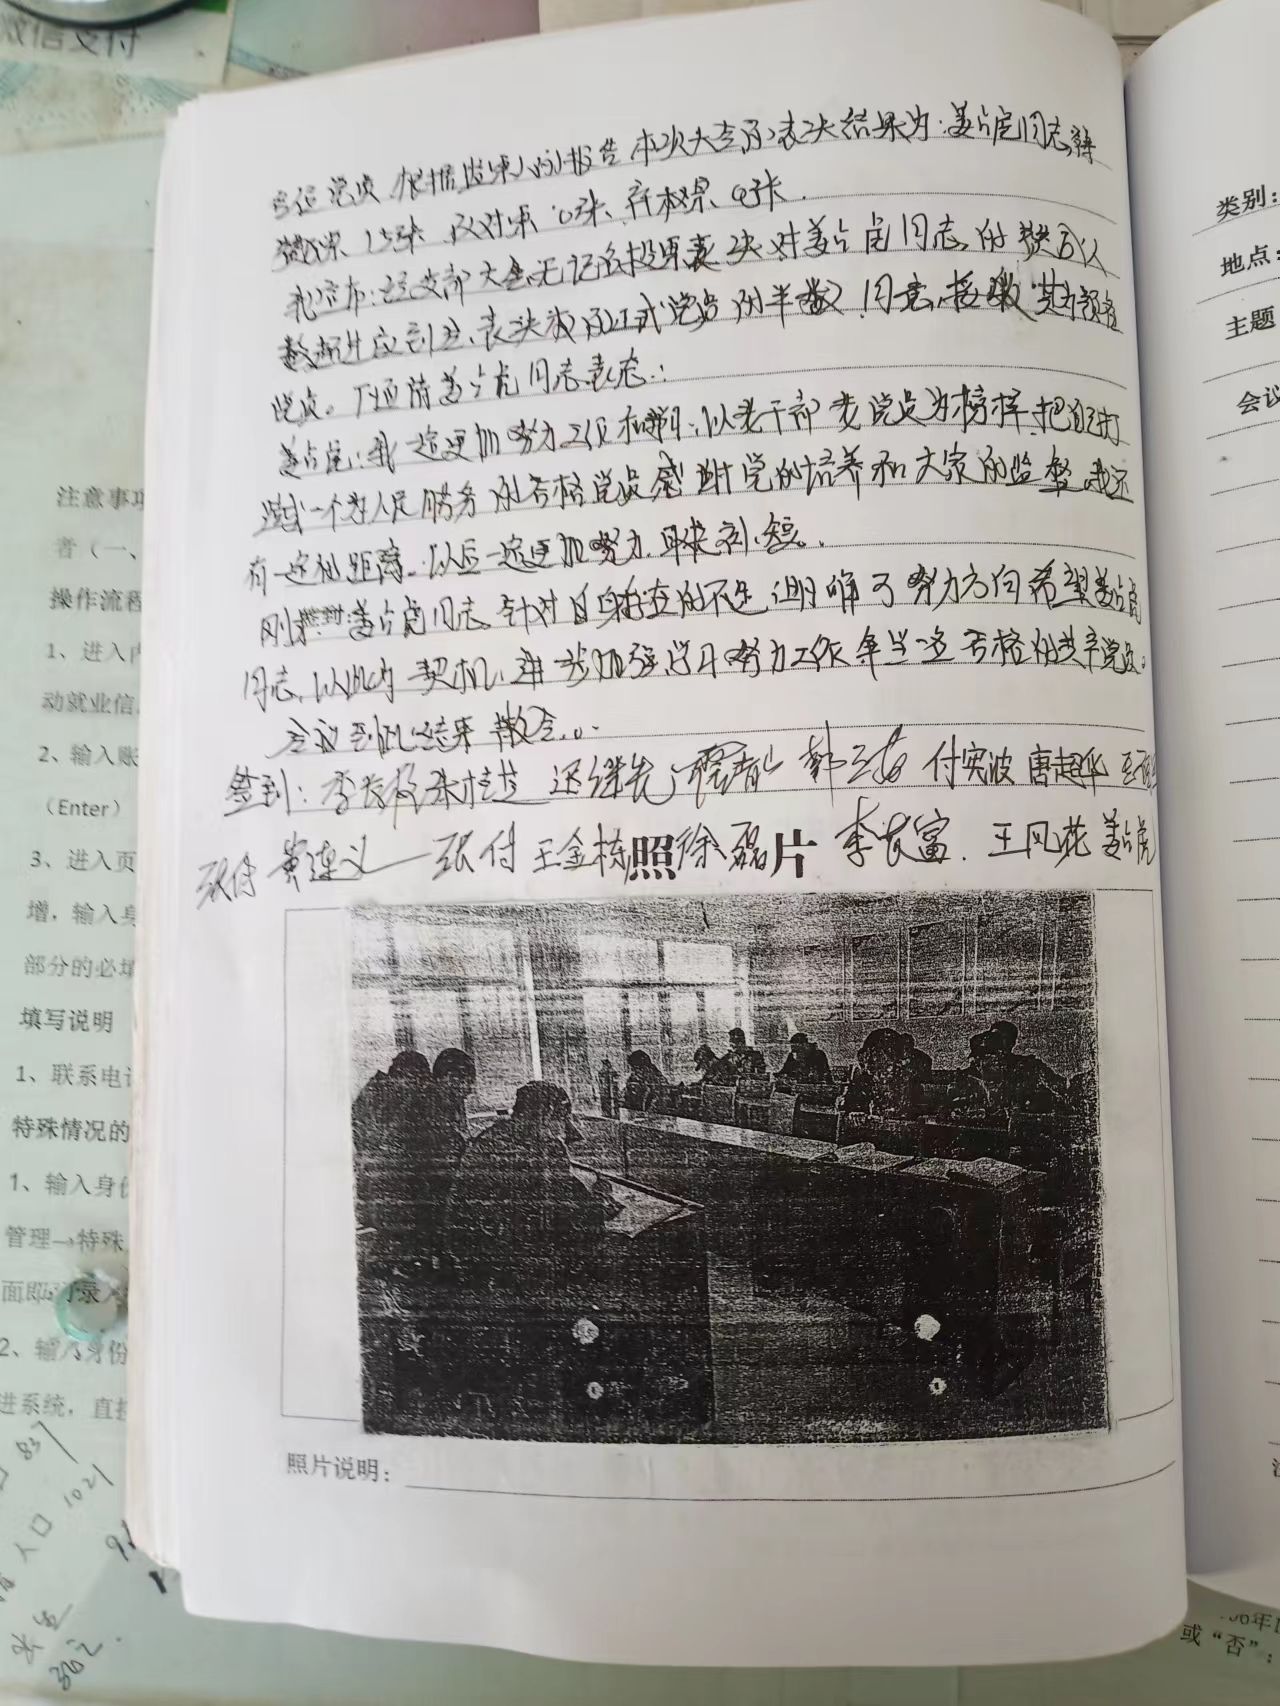 微信支付
根据监票人的报告 本次大会的表决结果为：姜占虎同志，获
赞成票15张 反对票0张、弃权票0张.
现公布：经支部大会无记名投票表决对姜占虎同志的赞成人
数超过应到会、表决权的正式党员的半数，同意接收其为预备
党员。下面请姜占虎同志表态：
姜占虎：我一定更加努力工作和学习，以老干部老党员为榜样，把自己打
造成一个为人民服务的合格党员感谢党的培养和大家的监督，我还
有一定的距离。以后一定更加努力，取长补短。
刚才姜占虎同志针对自身存在的不足 明确了努力方向希望姜占虎
同志，以此为契机，进一步加强学习努力工作争当一名合格的共产党员。
会议到此结束 散会。
签到：付实波 唐超华
张付 黄连义 张付 王金栋 徐磊 李长富 王凤花 姜占虎
照片
照片说明：
类别：
地点：
主题
会议
注意事项
者（一、
操作流程
1、进入内
动就业信息
2、输入账
（Enter）
3、进入页
增，输入身
部分的必填
填写说明
1、联系电话
特殊情况的
1、输入身份
管理→特殊
面即可录入
2、输入身份
进系统，直接
837
人口 1021
362
06年
或“否”：